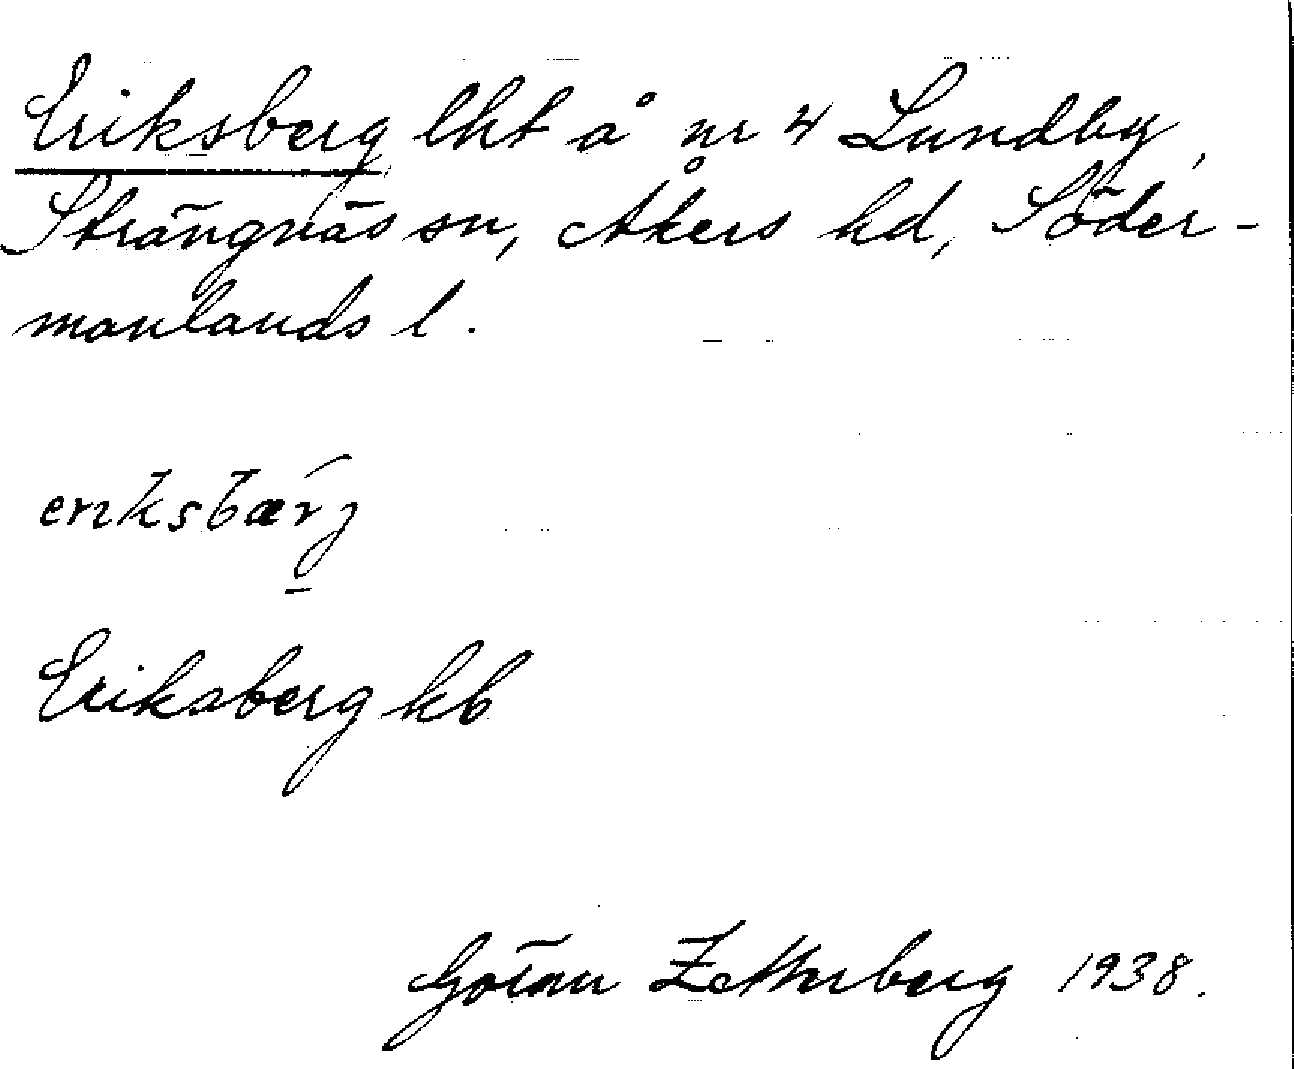 Eriksberg lht å nr 4 Lundby,
Strängnäs sn, Åkers hd, Söder-
manlands l.
eriksbærj
Eriksberg kb
Göran Zetterberg 1938.